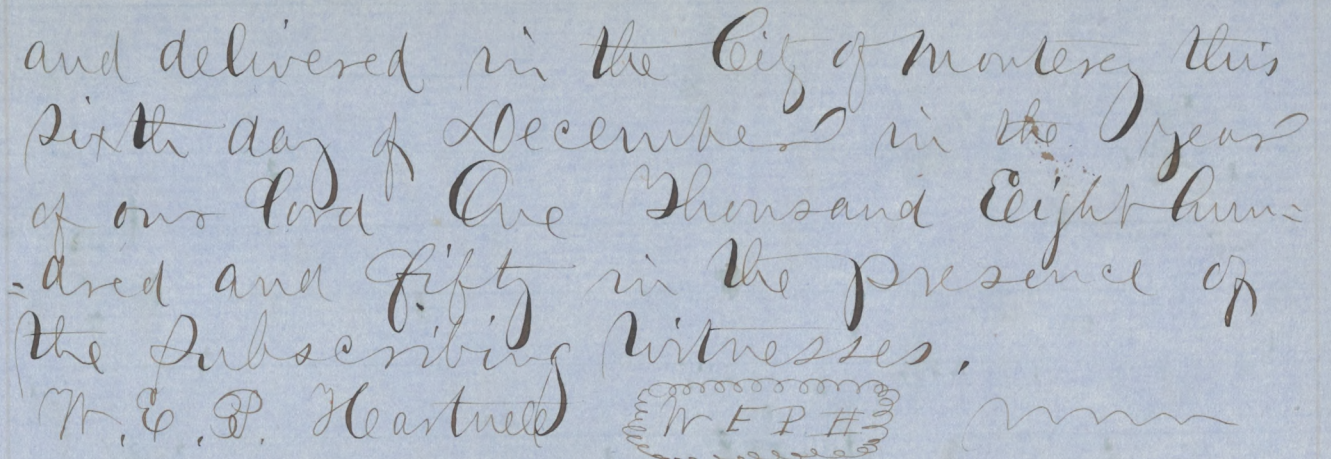 and delivered in the City of Monterey this
sixth day of December in the year
of our Lord One Thousand Eight hun=
=dred and fifty in the presence of
the Subscribing Witnesses.
W. E. P. Hartnell W E P H